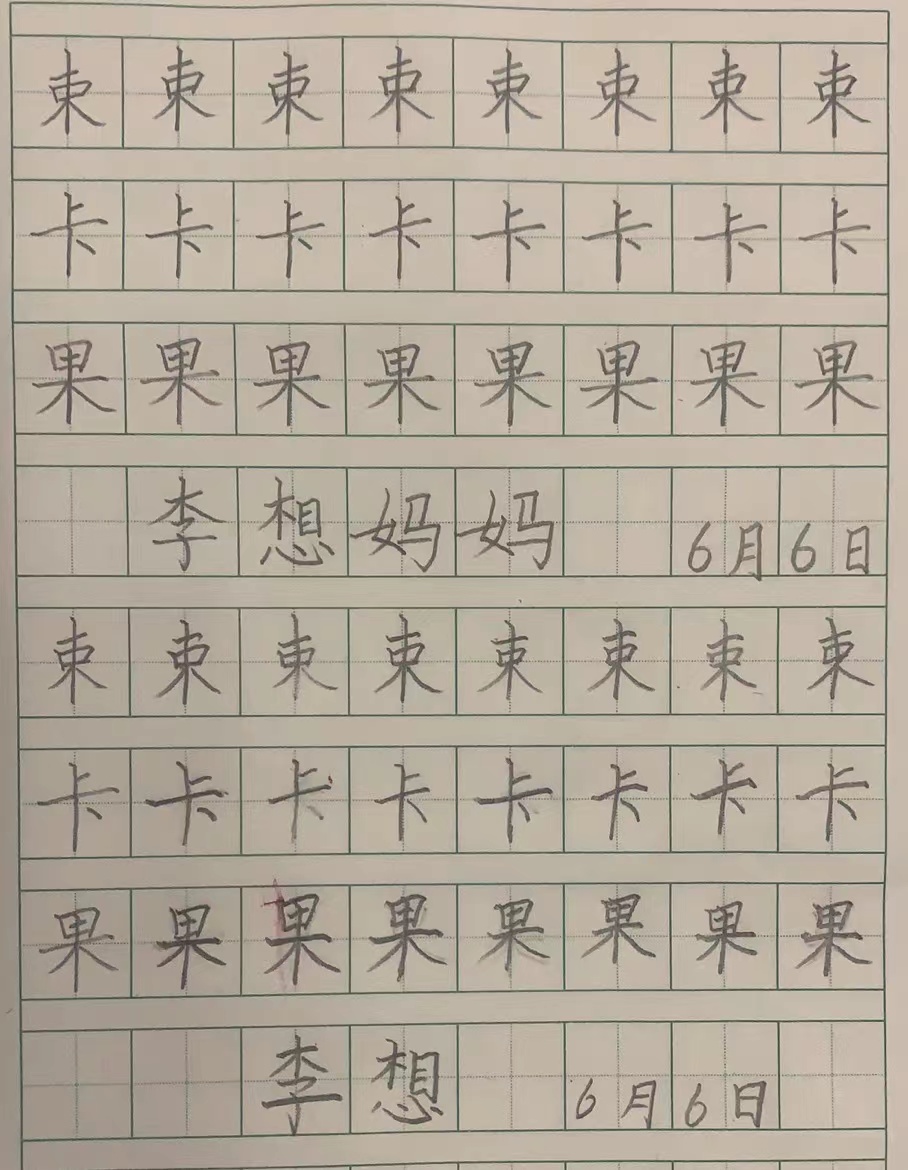 束束束束束束束束
卡卡卡卡卡卡卡卡
果果果果果果果果
李想妈妈 6月6日
束束束束束束束束
卡卡卡卡卡卡卡卡
果果果果果果果果
李想 6月6日